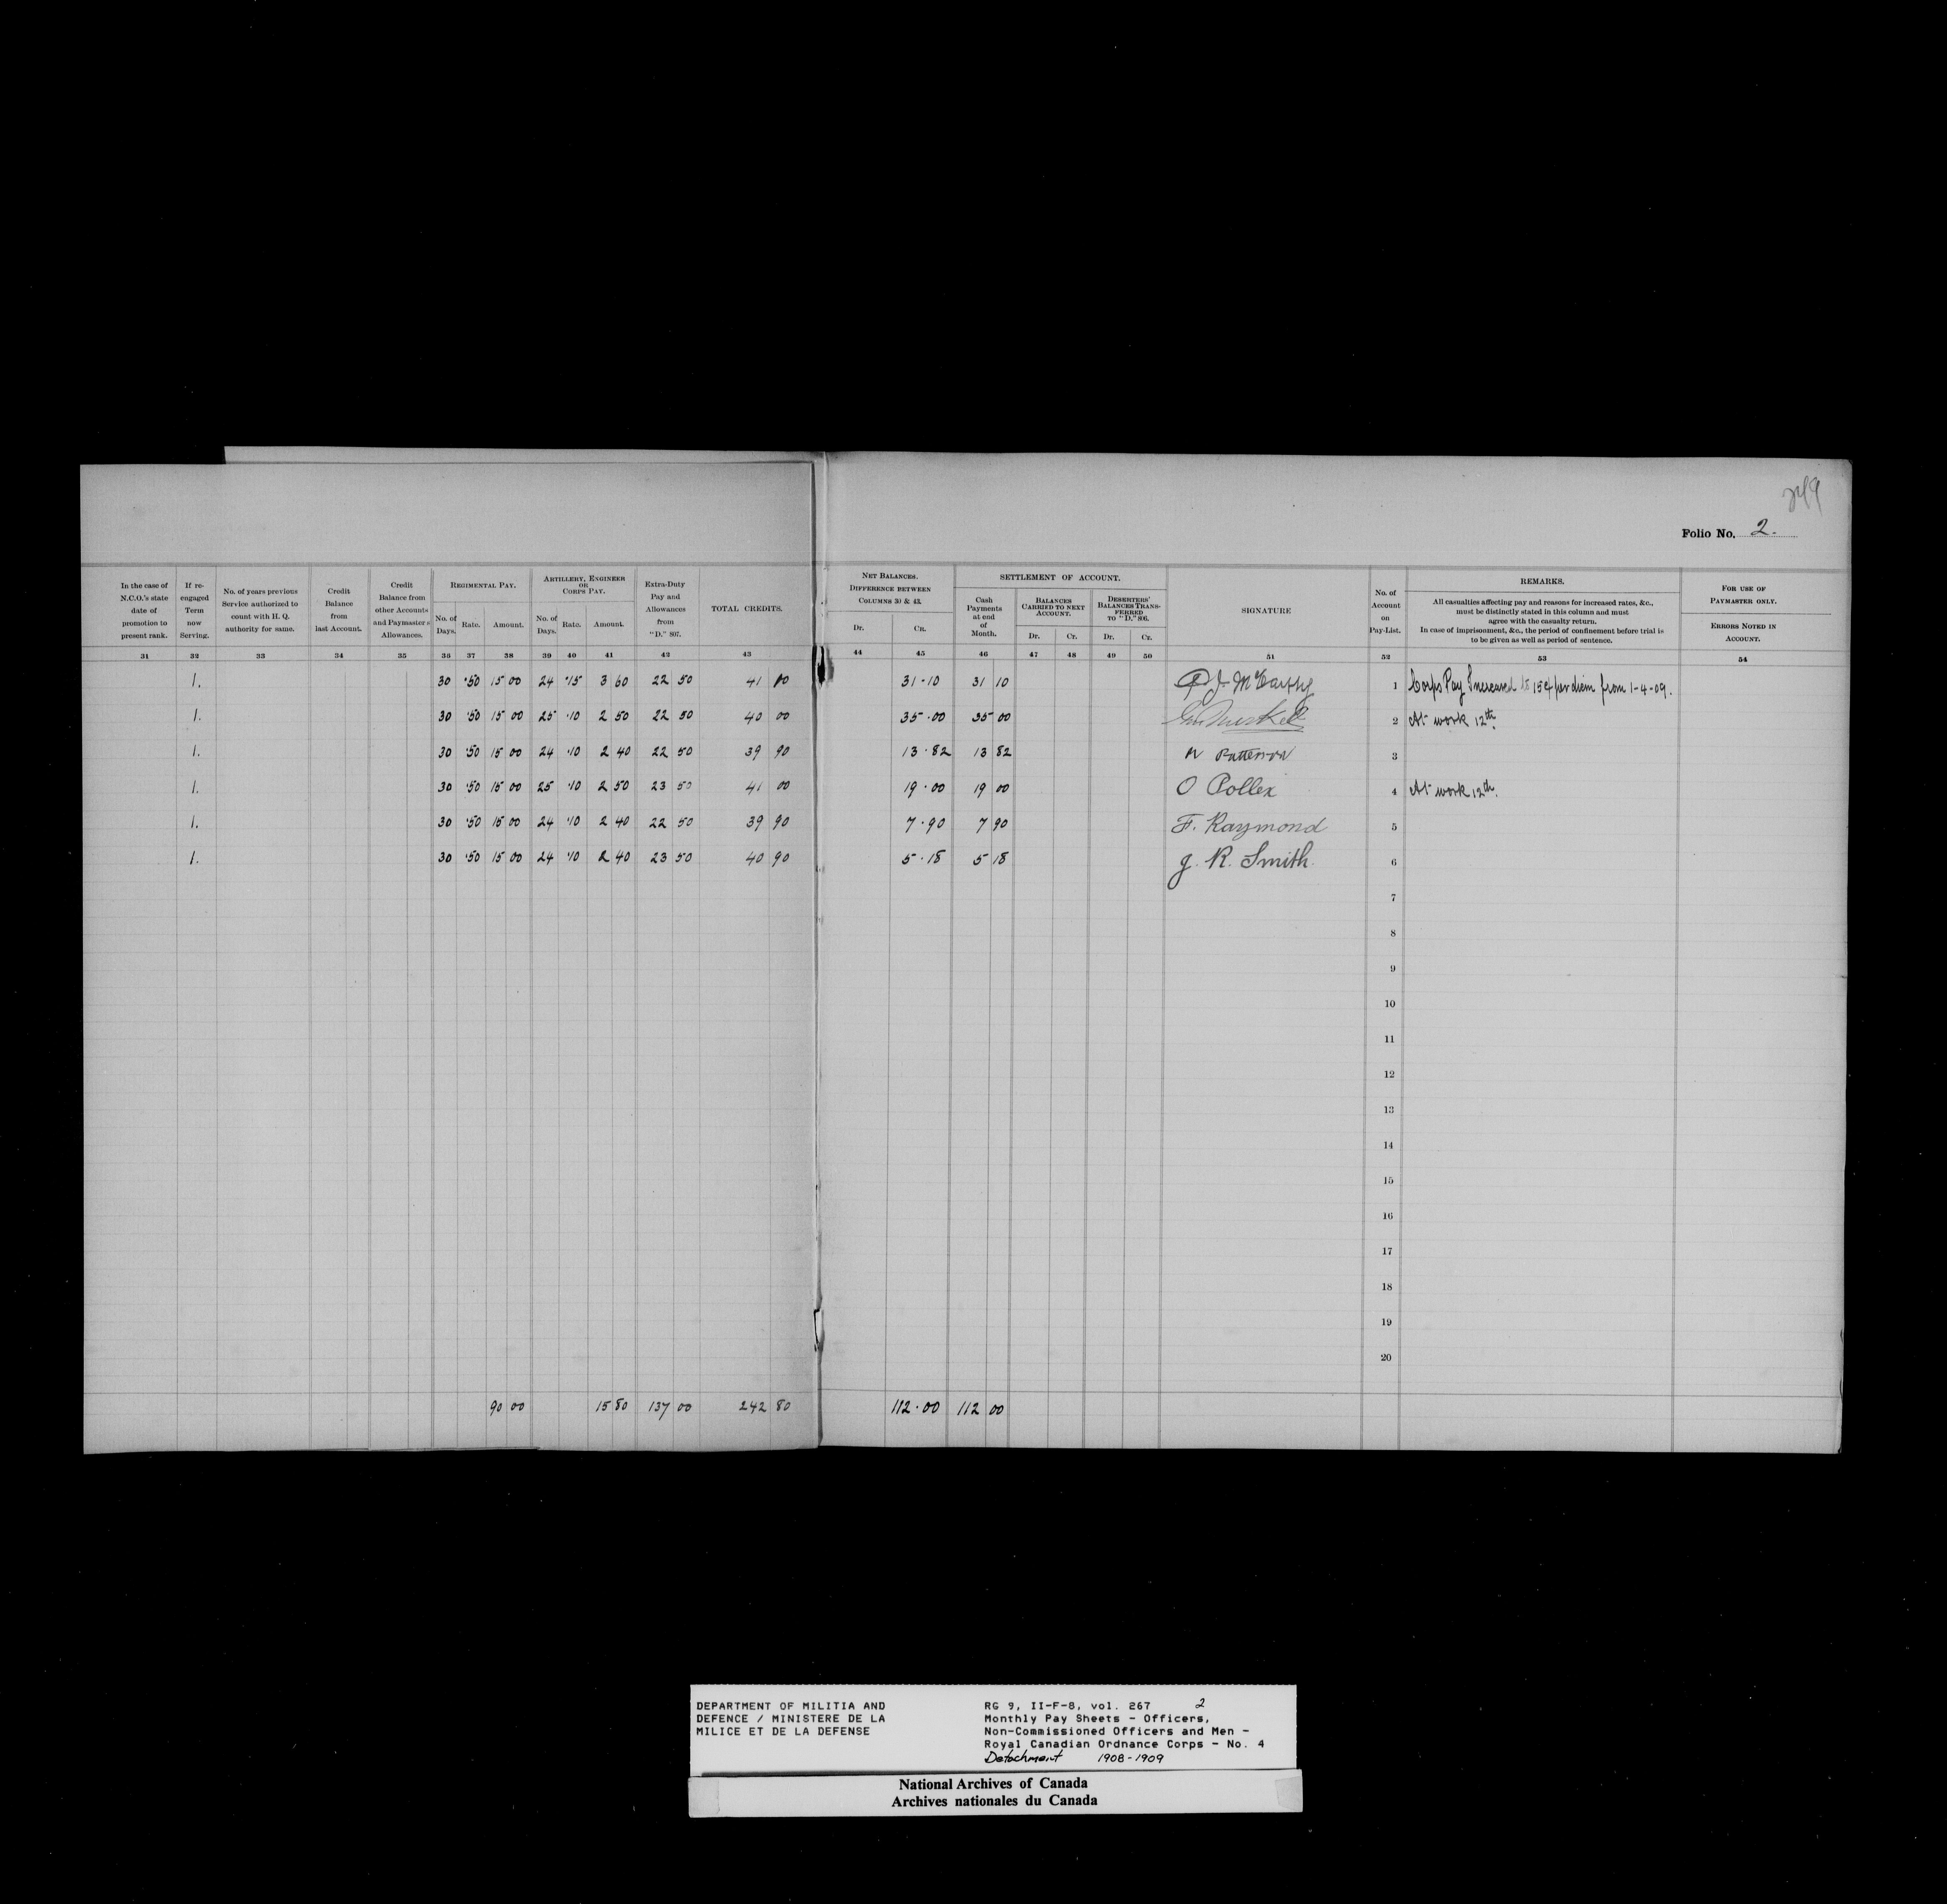 249
Folio No. 2.
In the case of N.C.O.'s state date of promotion to present rank.
If re-engaged Term now Serving.
No. of years previous Service authorized to count with H. Q. authority for same.
Credit Balance from last Account.
Credit Balance from other Accounts and Paymaster's Allowances.
REGIMENTAL PAY.
No. of Days. Rate. Amount.
ARTILLERY, ENGINEER OR CORPS PAY.
No. of Days. Rate. Amount.
Extra-Duty Pay and Allowances from "D." 807.
TOTAL CREDITS.
NET BALANCES.
DIFFERENCE BETWEEN COLUMNS 30 & 43.
DR. CR.
SETTLEMENT OF ACCOUNT.
Cash Payments at end of Month.
BALANCES CARRIED TO NEXT ACCOUNT.
Dr. Cr.
DESERTERS' BALANCES TRANSFERRED TO "D." 806.
Dr. Cr.
SIGNATURE
No. of Account on Pay-List.
REMARKS.
All casualties affecting pay and reasons for increased rates, &c.,
must be distinctly stated in this column and must
agree with the casualty return.
In case of imprisonment, &c., the period of confinement before trial is
to be given as well as period of sentence.
FOR USE OF PAYMASTER ONLY.
ERRORS NOTED IN ACCOUNT.
31 32 33 34 35 36 37 38 39 40 41 42 43 44 45 46 47 48 49 50 51 52 53 54
1. 30 .50 15 00 24 .15 3 60 22 50 41 10 31.10 31 10 J. McCarthy 1 Corps Pay Increased to 15¢ per diem from 1-4-09.
1. 30 .50 15 00 25 .10 2 50 22 50 40 00 35.00 35 00 2 At work 12th.
1. 30 .50 15 00 24 .10 2 40 22 50 39 90 13.82 13 82 Patterson 3
1. 30 .50 15 00 25 .10 2 50 23 50 41 00 19.00 19 00 O Pollex 4 At work 12th.
1. 30 .50 15 00 24 .10 2 40 22 50 39 90 7.90 7 90 F. Raymond 5
1. 30 .50 15 00 24 .10 2 40 23 50 40 90 5.18 5 18 J. R. Smith 6
7
8
9
10
11
12
13
14
15
16
17
18
19
20
90 00 15 80 137 00 242 80 112.00 112 00
DEPARTMENT OF MILITIA AND
DEFENCE / MINISTERE DE LA
MILICE ET DE LA DEFENSE
RG 9, II-F-8, vol. 267 2
Monthly Pay Sheets - Officers,
Non-Commissioned Officers and Men -
Royal Canadian Ordnance Corps - No. 4
Detachment 1908-1909
National Archives of Canada
Archives nationales du Canada